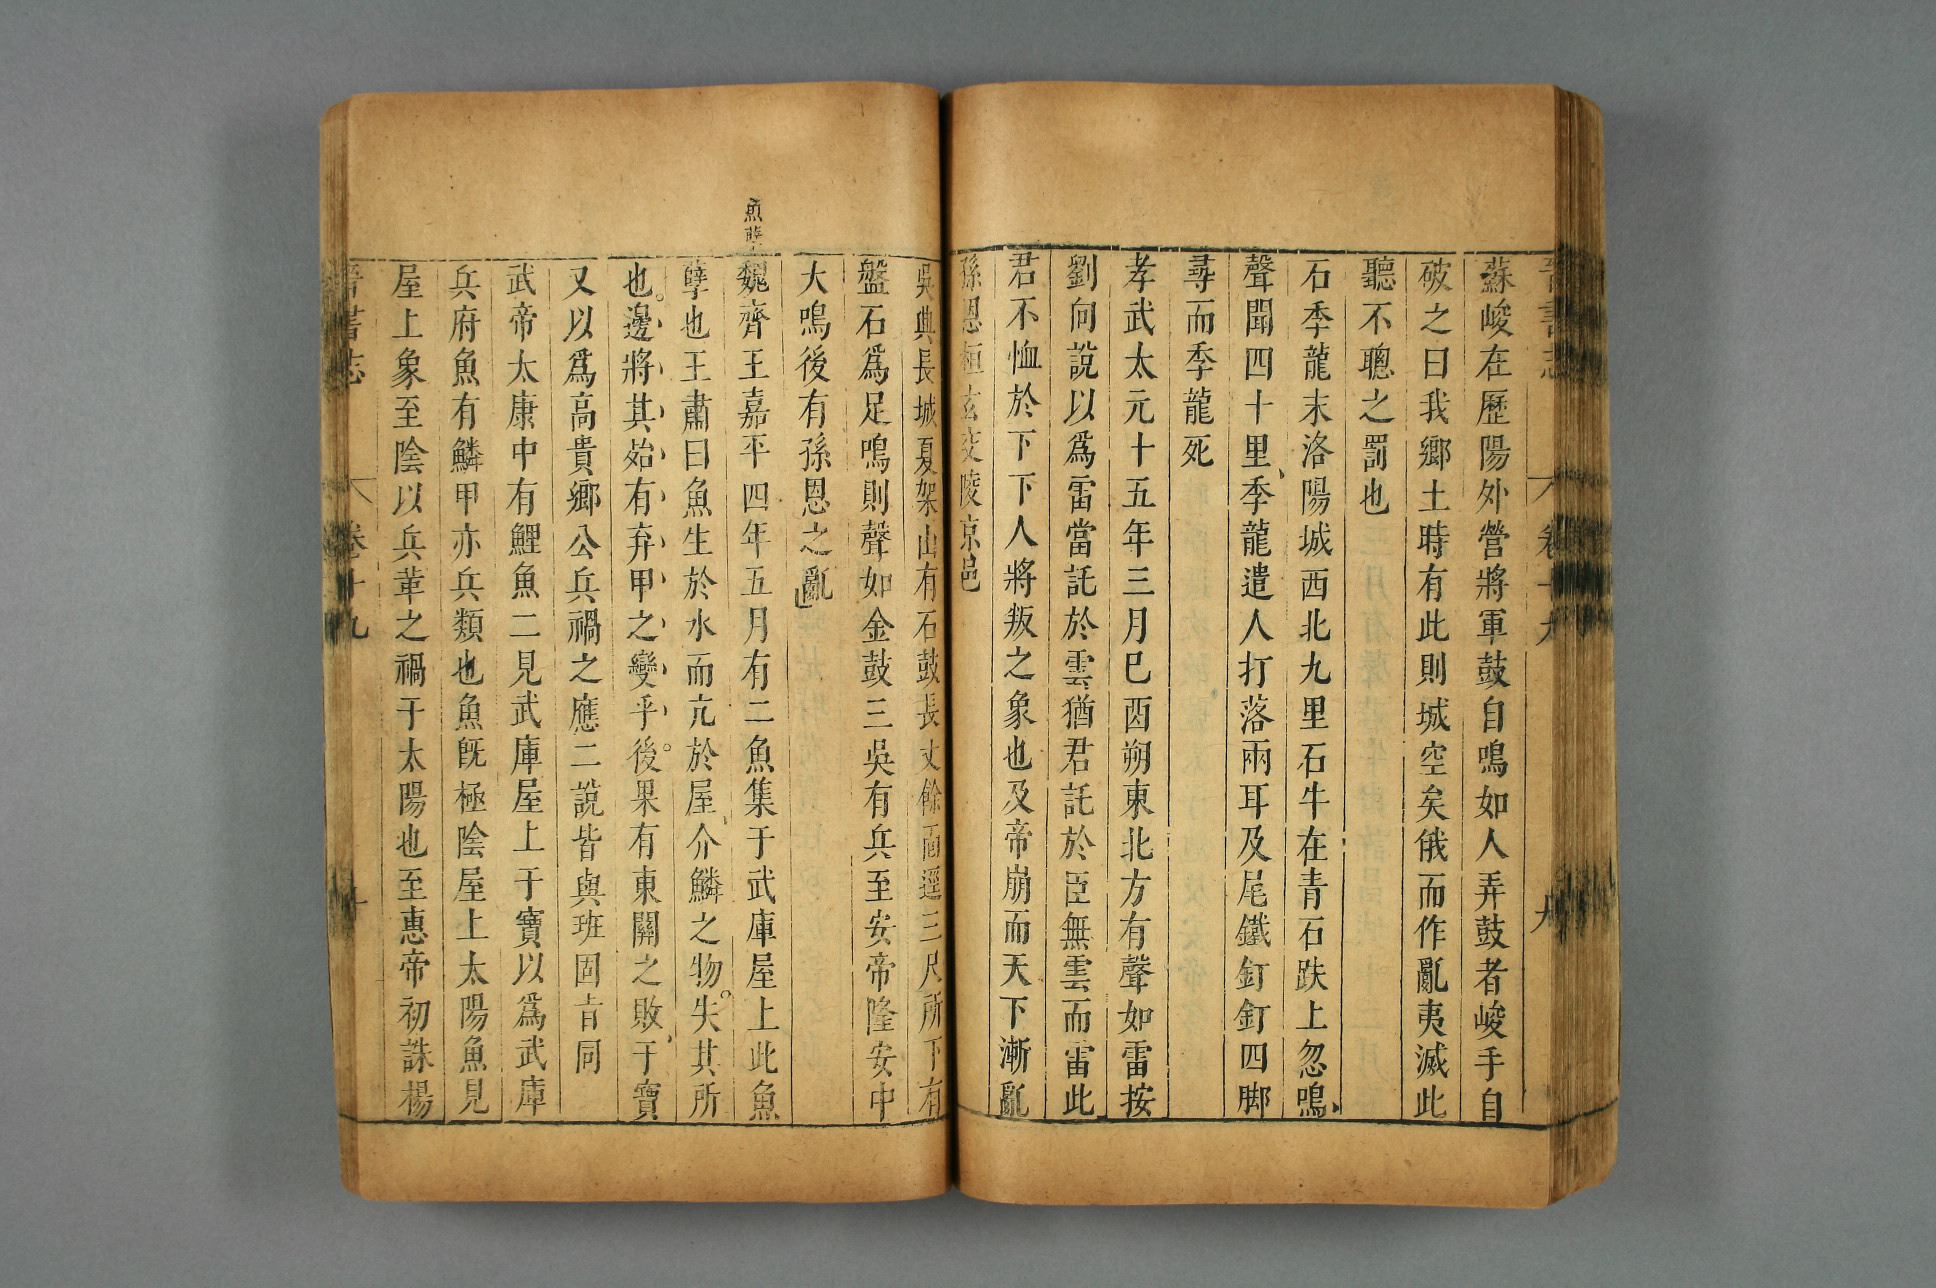 晉書志 卷十九 九
蘇峻在歷陽外營將軍鼓自鳴如人弄鼓者峻手自
破之曰我鄉土時有此則城空矣俄而作亂夷滅此
聽不聰之罰也
石季龍末洛陽城西北九里石牛在青石趺上忽鳴
聲聞四十里季龍遣人打落兩耳及尾鐵釘釘四脚
尋而季龍死
孝武太元十五年三月己酉朔東北方有聲如雷按
劉向說以爲雷當託於雲猶君託於臣無雲而雷此
君不恤於下下人將叛之象也及帝崩而天下漸亂
孫恩桓玄交陵京邑
吳興長城夏架山有石鼓長丈餘面逕三尺所下有
盤石爲足鳴則聲如金鼓三吳有兵至安帝隆安中
大鳴後有孫恩之亂
魚孽
魏齊王嘉平四年五月有二魚集于武庫屋上此魚
孽也王肅曰魚生於水而亢於屋介鱗之物失其所
也邊將其始有弃甲之變乎後果有東關之敗干寶
又以爲高貴鄉公兵禍之應二說皆與班固旨同
武帝太康中有鯉魚二見武庫屋上干寶以爲武庫
兵府魚有鱗甲亦兵類也魚旣極陰屋上太陽魚見
屋上象至陰以兵革之禍干太陽也至惠帝初誅楊
晉書志 卷十九 十